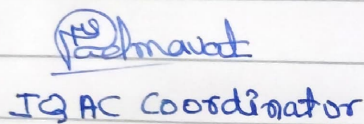 Padmavati
IQAC Coordinator